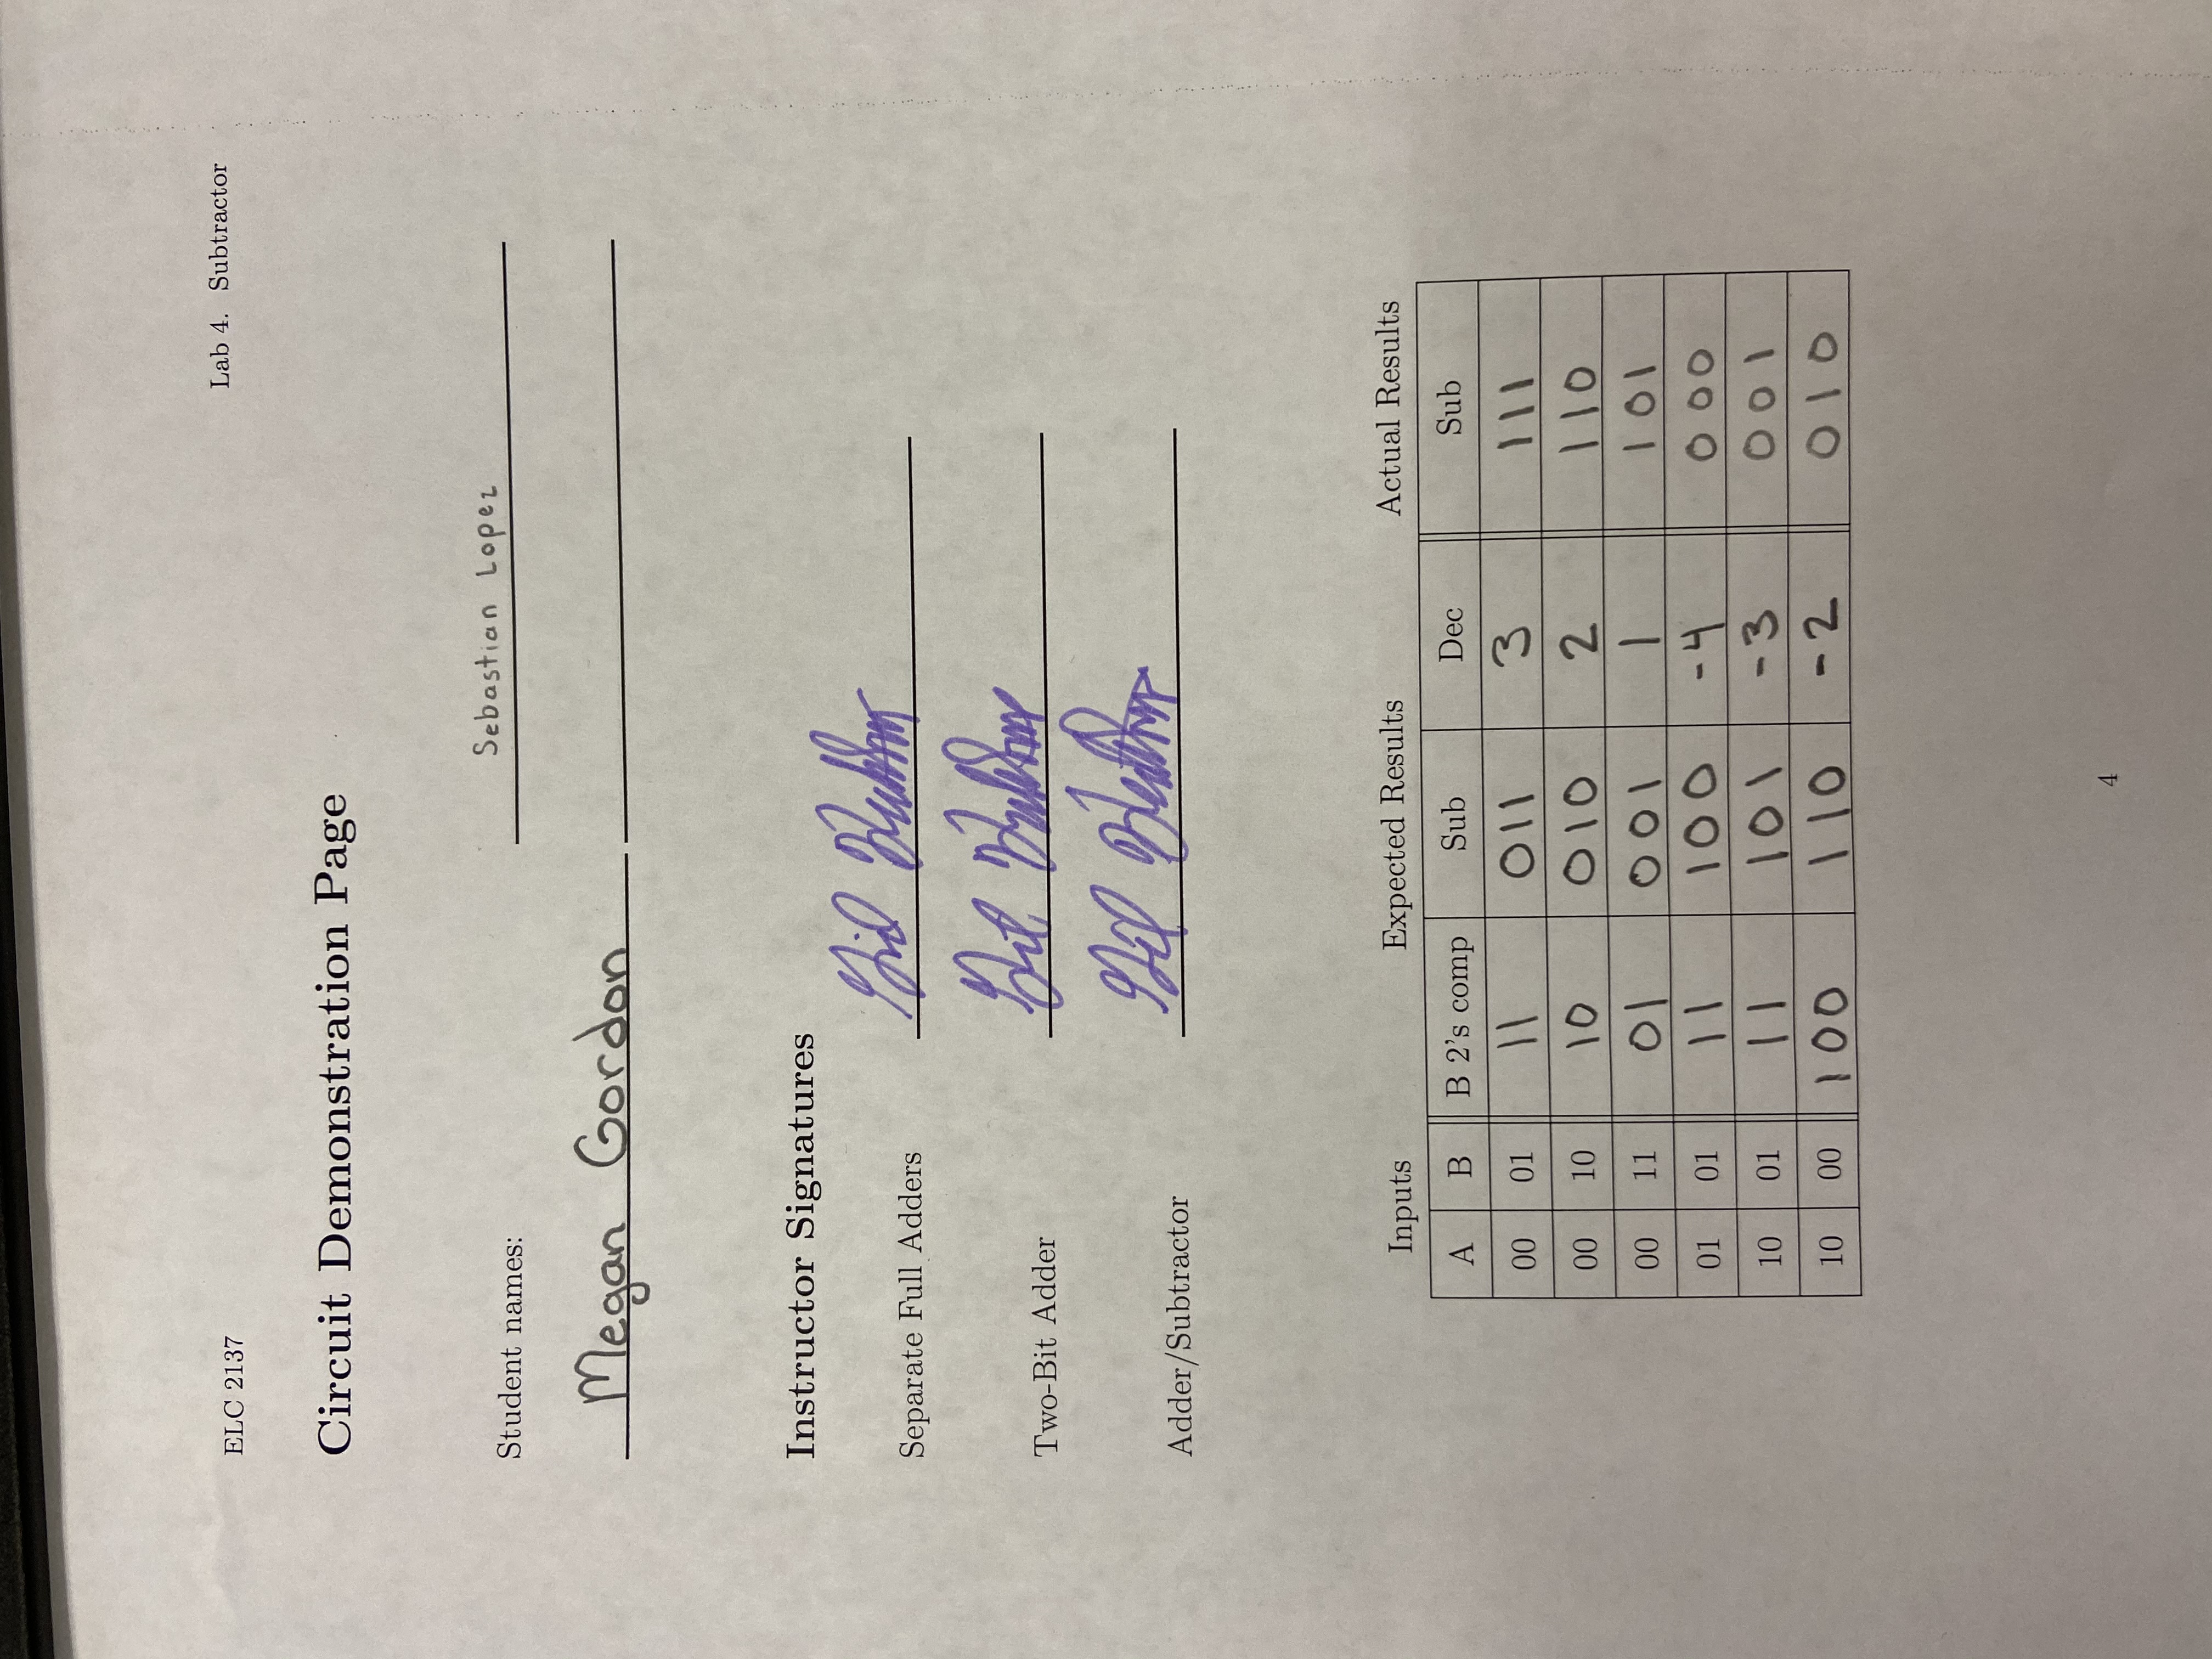 ELC 2137 Lab 4. Subtractor
Circuit Demonstration Page
Sebastian Lopez
Student names:
Megan Gordon
Instructor Signatures
Separate Full Adders
Two-Bit Adder
Adder/Subtractor
Inputs Expected Results Actual Results
A B B 2's comp Sub Dec Sub
00 01 11 011 3 111
00 10 10 010 2 110
00 11 01 001 1 101
01 01 11 100 -4 000
10 01 11 101 -3 001
10 00 100 110 -2 010
4